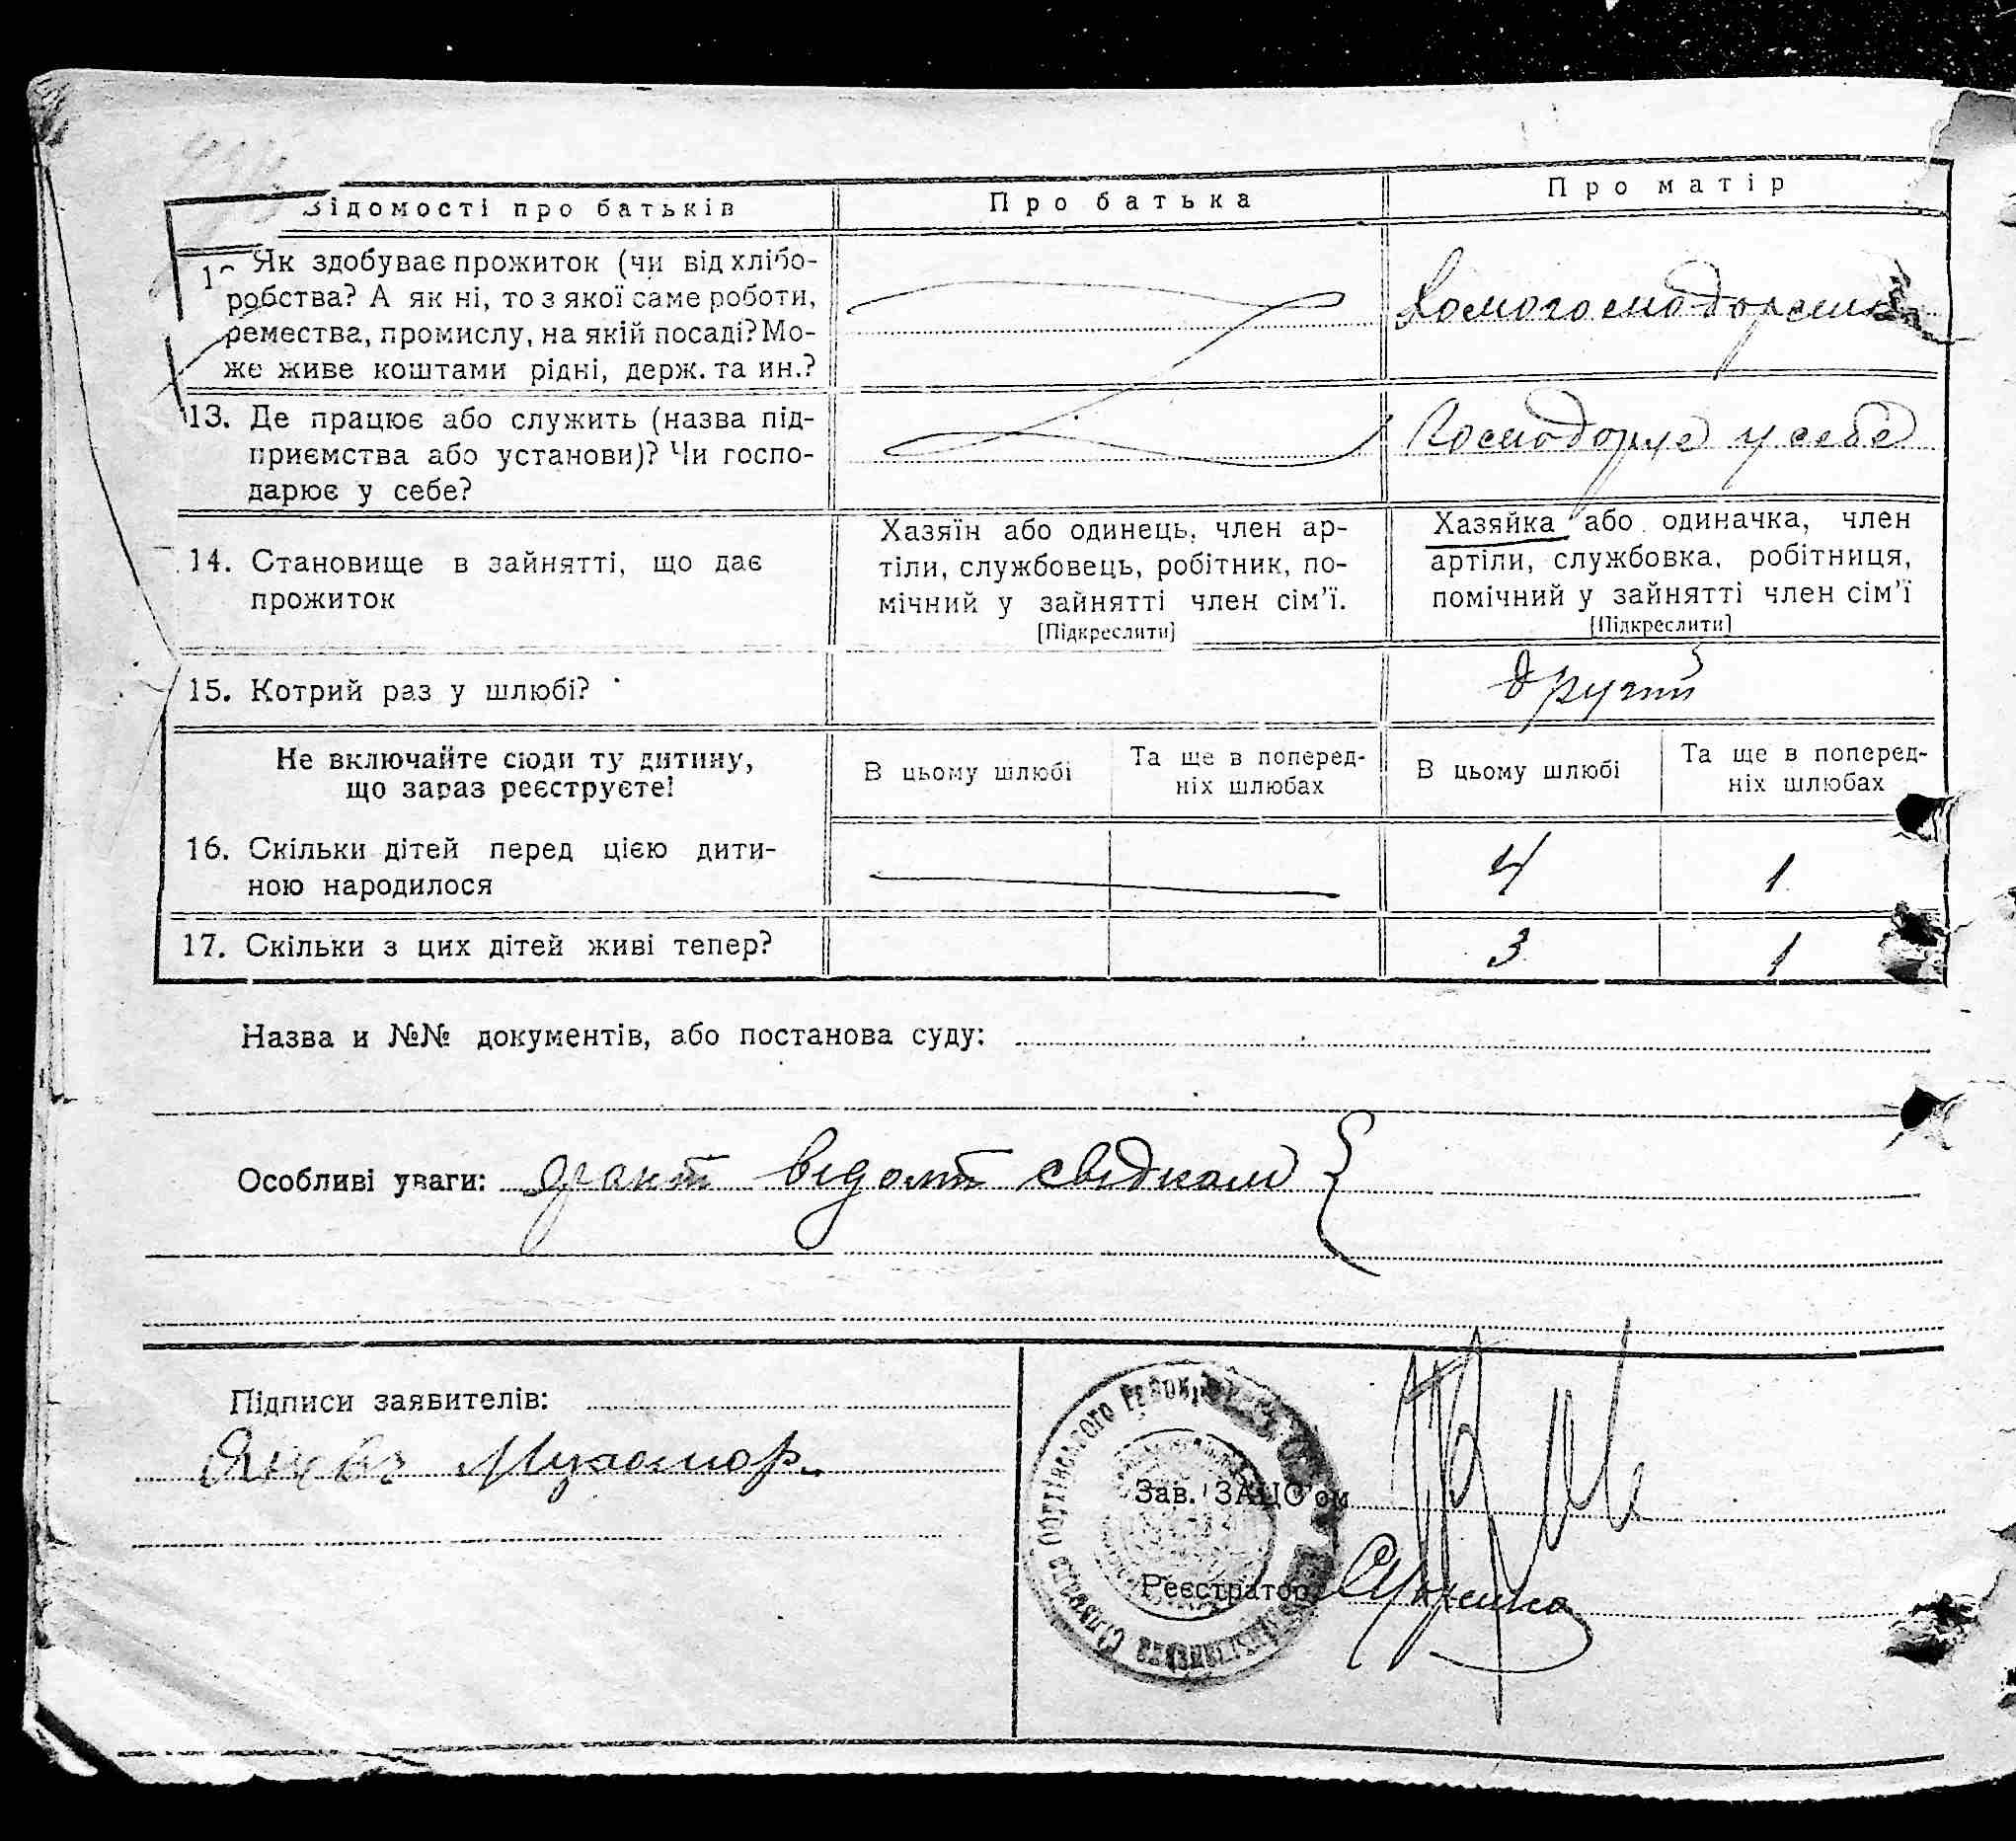 Відомості про батьків
Про батька
Про матір
Як здобуває прожиток (чи від хлібо-
робства? А як ні, то з якої саме роботи,
ремества, промислу, на якій посаді? Мо-
же живе коштами рідні, держ. та ин.?
Домогосподарська
13. Де працює або служить (назва під-
приємства або установи)? Чи госпо-
дарює у себе?
Господарує у себе
14. Становище в зайнятті, що дає
прожиток
Хазяїн або одинець, член ар-
тіли, службовець, робітник, по-
мічний у зайнятті член сім'ї.
[Підкреслити]
Хазяйка або одиначка, член
артіли, службовка, робітниця,
помічний у зайнятті член сім'ї
[Підкреслити]
15. Котрий раз у шлюбі?
другий
Не включайте сюди ту дитину,
що зараз реєструєте!
В цьому шлюбі
Та ще в поперед-
ніх шлюбах
В цьому шлюбі
Та ще в поперед-
ніх шлюбах
16. Скільки дітей перед цією дити-
ною народилося
4
1
17. Скільки з цих дітей живі тепер?
3
1
Назва и №№ документів, або постанова суду:
Особливі уваги: факт відомт свідкам
Підписи заявителів:
Яковъ Мухомор
Зав. ЗАЦС'ом
Реєстратор